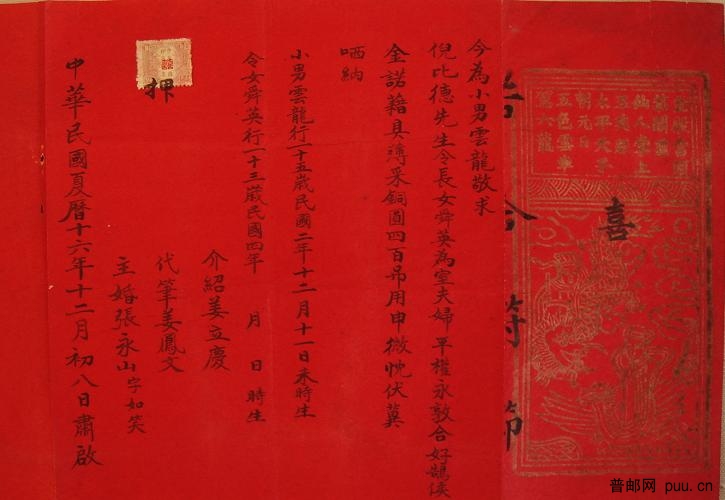 仙人掌上
玉芙蓉
太平天子
朝元日
五色雲車
駕六龍
喜
合符節
今為小男雲龍敬求
倪比德先生令長女舜英為室夫婦平權永敦合好鵠俟
金諾藉具薄采銅圓四百吊用申微忱伏冀
哂納
小男雲龍行一十五歲民國二年十二月十一日未時生
令女舜英行一十三歲民國四年 月 日時生
介紹姜立慶
代筆姜鳳文
主婚張永山字如笑
押
中華民國夏曆十六年十二月初八日肅啟
普邮网 puu.cn